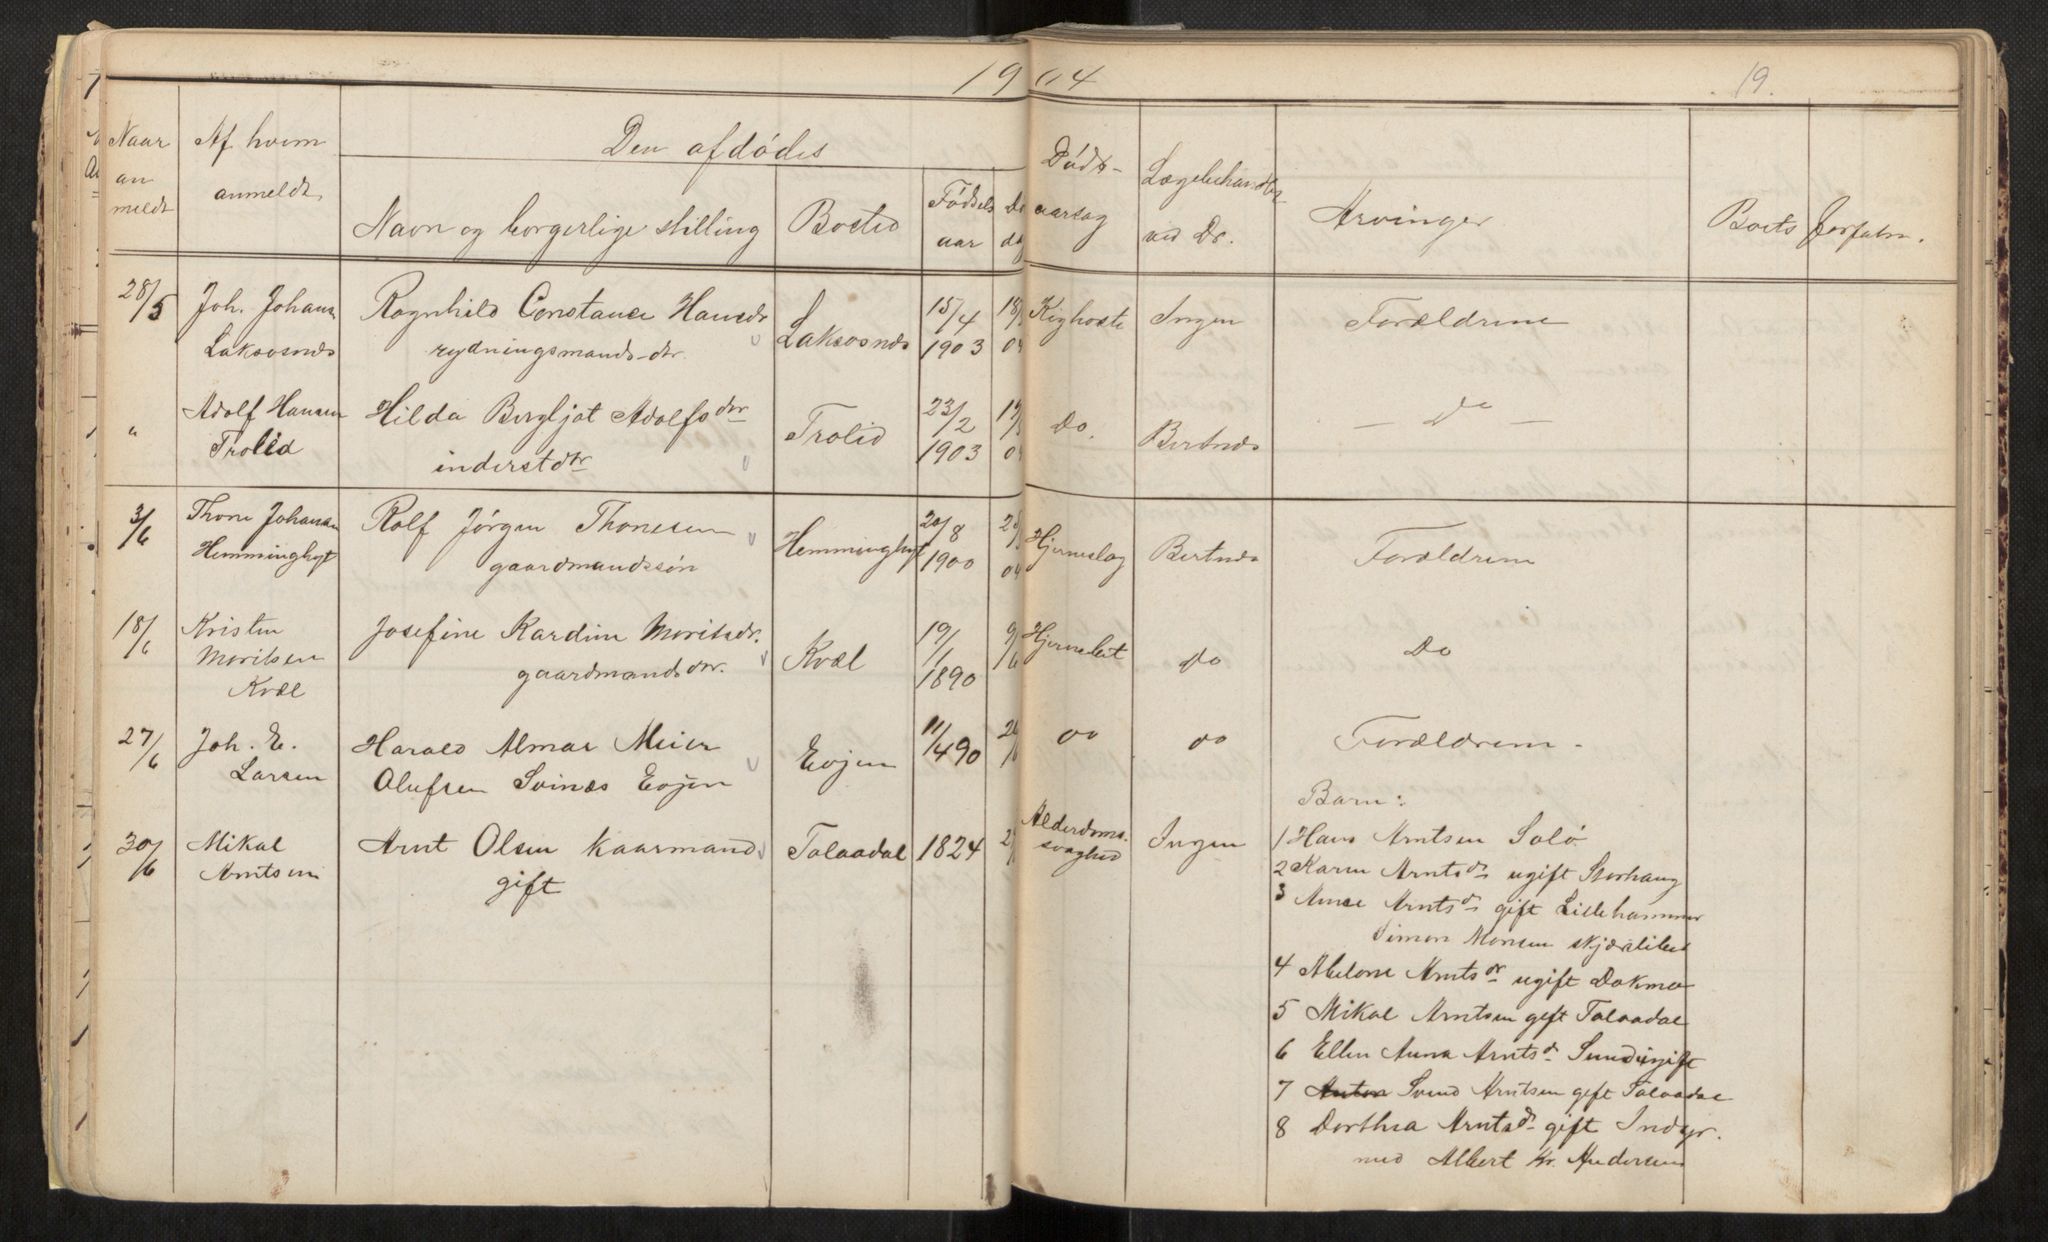 1904
19.
Naar anmeldt
Af hvem anmeldt,
Den afdødes
Navn og borgerlige stilling
Bosted
Fødsels aar
Dø dag
Døds-aarsag
Lægebehandlet ved Dr.
Arvinger
Boets Forfatn.
28/5
Joh. Johans
Laksosnes
Ragnhild Constance Hansdr
rydningsmands-dtr.
Laksosnes
15/4 1903
18/5 04
Kighoste
Ingen
Forældrene
"
Adolf Hansen
Trolid
Hilda Bergljot Adolfsdtr
inderstdtr
Trolid
23/2 1903
19/5 04
Do.
Bertnes
— Do —
3/6
Thone Johansen
Hemminghyt
Rolf Jørgen Thonesen
gaardmandssøn
Hemminghyt
20/8 1900
04
Hjerneslag
Bertnes
Forældrene
18/6
Kristen
Moritsen
Kvæl
Josefine Kardine Moritsdr.
gaardmandsdtr.
Kvæl
19/1 1890
9/6
do
Do
27/6
Joh. E.
Larsen
Harald Almar Meier
Olufsen Svinæs Evjen
Evjen
11/4 90
do
do
Forældrene -
30/6
Mikal
Arntsen
Arnt Olsen kaarmand
gift
Tolaadal
1824
Alderdoms-
svaghed
Ingen
Barn:
1 Hans Arntsen Solø
2 Karen Arntsd ugift Storhaug
3 Anne Arntsd gift Lillehammer
Simon Monsen skjærlilied
4 Abelone Arntsdr ugift Dokmo
5 Mikal Arntsen gift Tolaadal
6 Ellen Anna Arntsd Sund ugift
7 Anton Svend Arntsen gift Tolaadal
8 Dorthea Arntsd gift Indyr.
med Albert Kr. Andersen